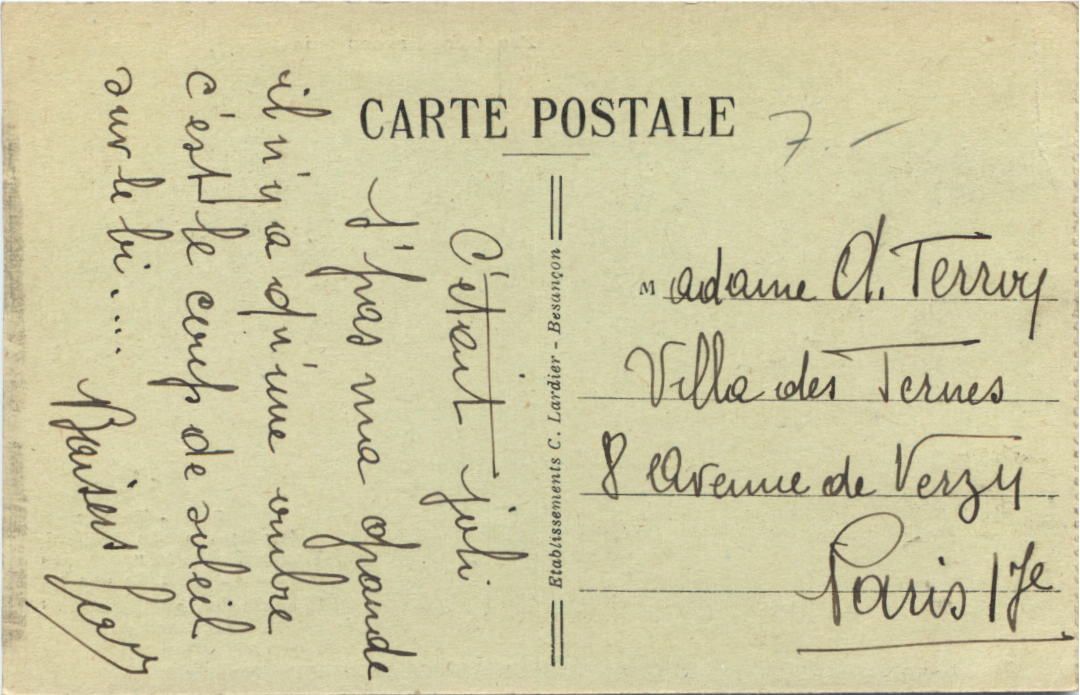 CARTE POSTALE
7.-
C'était joli
J'pas ma grande
il n'y a qu'une ombre
c'est le coup de soleil
sur le bi....
Baisers
Etablissements C. Lardier - Besançon
Madame A. Terroy
Villa des Ternes
8 Avenue de Verzy
Paris 17e